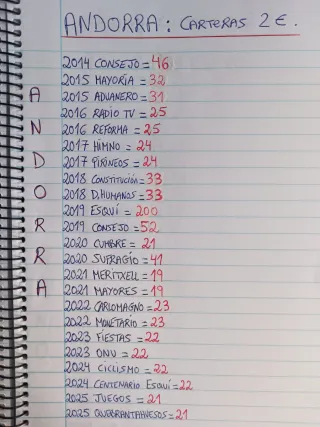 ANDORRA: CARTERAS 2 €.
2014 CONSEJO = 46
2015 MAYORÍA = 32
2015 ADUANERO = 31
2016 RADIO TV = 25
2016 REFORMA = 25
2017 HIMNO = 24
2017 PIRINEOS = 24
2018 CONSTITUCIÓN = 33
2018 D.HUMANOS = 33
2019 ESQUÍ = 200
2019 CONSEJO = 52
2020 CUMBRE = 21
2020 SUFRAGIO = 41
2021 MERITXELL = 19
2021 MAYORES = 19
2022 CARLOMAGNO = 23
2022 MONETARIO = 23
2023 FIESTAS = 22
2023 ONU = 22
2024 CICLISMO = 22
2024 CENTENARIO ESQUÍ = 22
2025 JUEGOS = 21
2025 QUEBRANTAHUESOS = 21
A
N
D
O
R
R
A